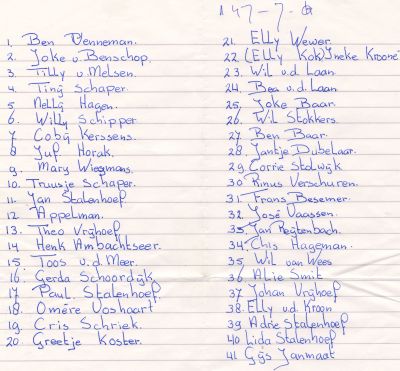 1. Ben Venneman.
2. Joke v. Benschop.
3. Tilly v. Melsen.
4. Tiny Schaper.
5. Nelly Hagen.
6. Willy Schipper
7. Coby Kerssens.
8. Juf Horak.
9. Mary Wiegmans.
10. Truusje Schaper.
11. Jan Stalenhoef
12. Appelman.
13. Theo Vrijhoef
14. Henk Ambachtseer.
15. Toos v.d. Meer.
16. Gerda Schoordijk.
17. Paul. Stalenhoef.
18. Omére Voshaart
19. Cris Schriek.
20. Greetje Koster.
147-7-
21. Elly Wewer.
22. (Elly Kok) Ineke Kroone
23. Wil v.d. Laan.
24. Bea v.d. Laan.
25. Joke Baar.
26. Wil Stokkers.
27. Ben Baar.
28. Jantje Dubelaar.
29. Corrie Stolwijk
30. Rinus Verschuren.
31. Frans Besemer.
32. José Vaassen.
33. Jan Reijtenbach.
34. Chis Hageman.
35. Wil van Wees
36. Alie Smit
37. Johan Vrijhoef
38. Elly v.d. Kroon
39. Adrie Stalenhoef
40. Lida Stalenhoef
41. Gijs Janmaat